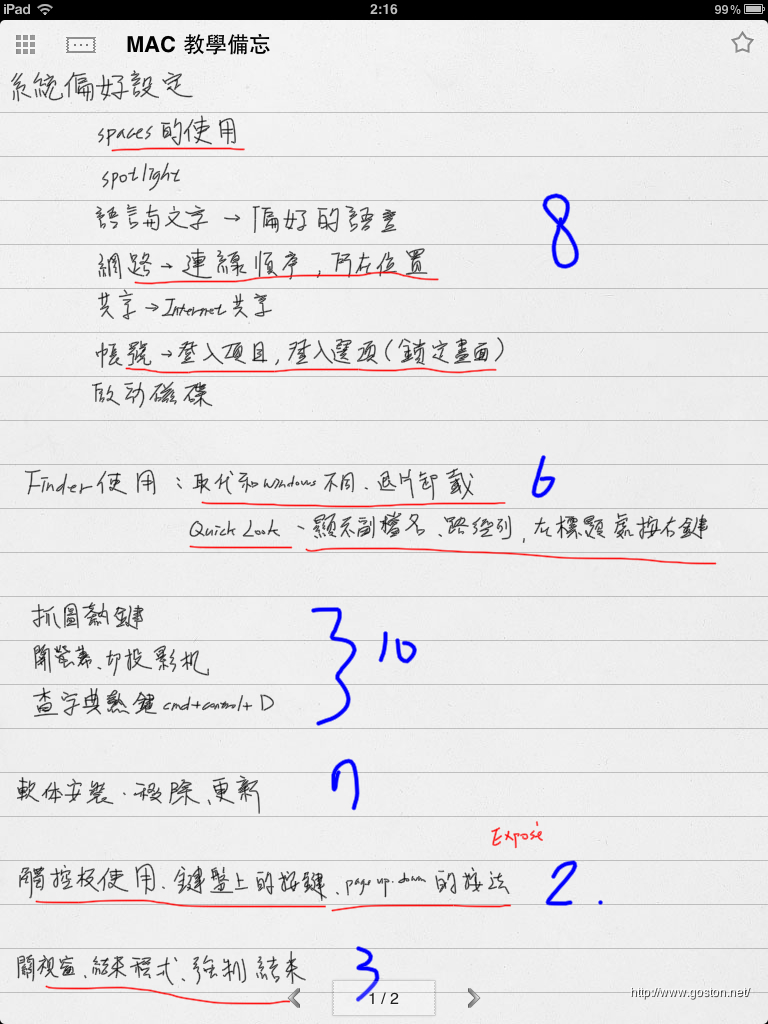 iPad 2:16 99%
MAC 教學備忘
系統偏好設定
spaces 的使用
spotlight
語言與文字 → 偏好的語言
8
網路 → 連線順序, 所在位置
共享 → Internet 共享
帳號 → 登入項目, 登入選項 (鎖定畫面)
啟动磁碟
Finder 使用 : 取代和 windows 不同、退片卸載
6
Quick Look、顯示副檔名、路徑列, 在標題處按右鍵
抓圖熱鍵
關螢幕、切投影机
10
查字典熱鍵 cmd+control+D
軟体安裝、移除、更新
7
Exposé
觸控板使用、鍵盤上的按鍵、page up.down 的按法
2.
關視窗、結束程式、強制結束
3
1 / 2
http://www.goston.net/